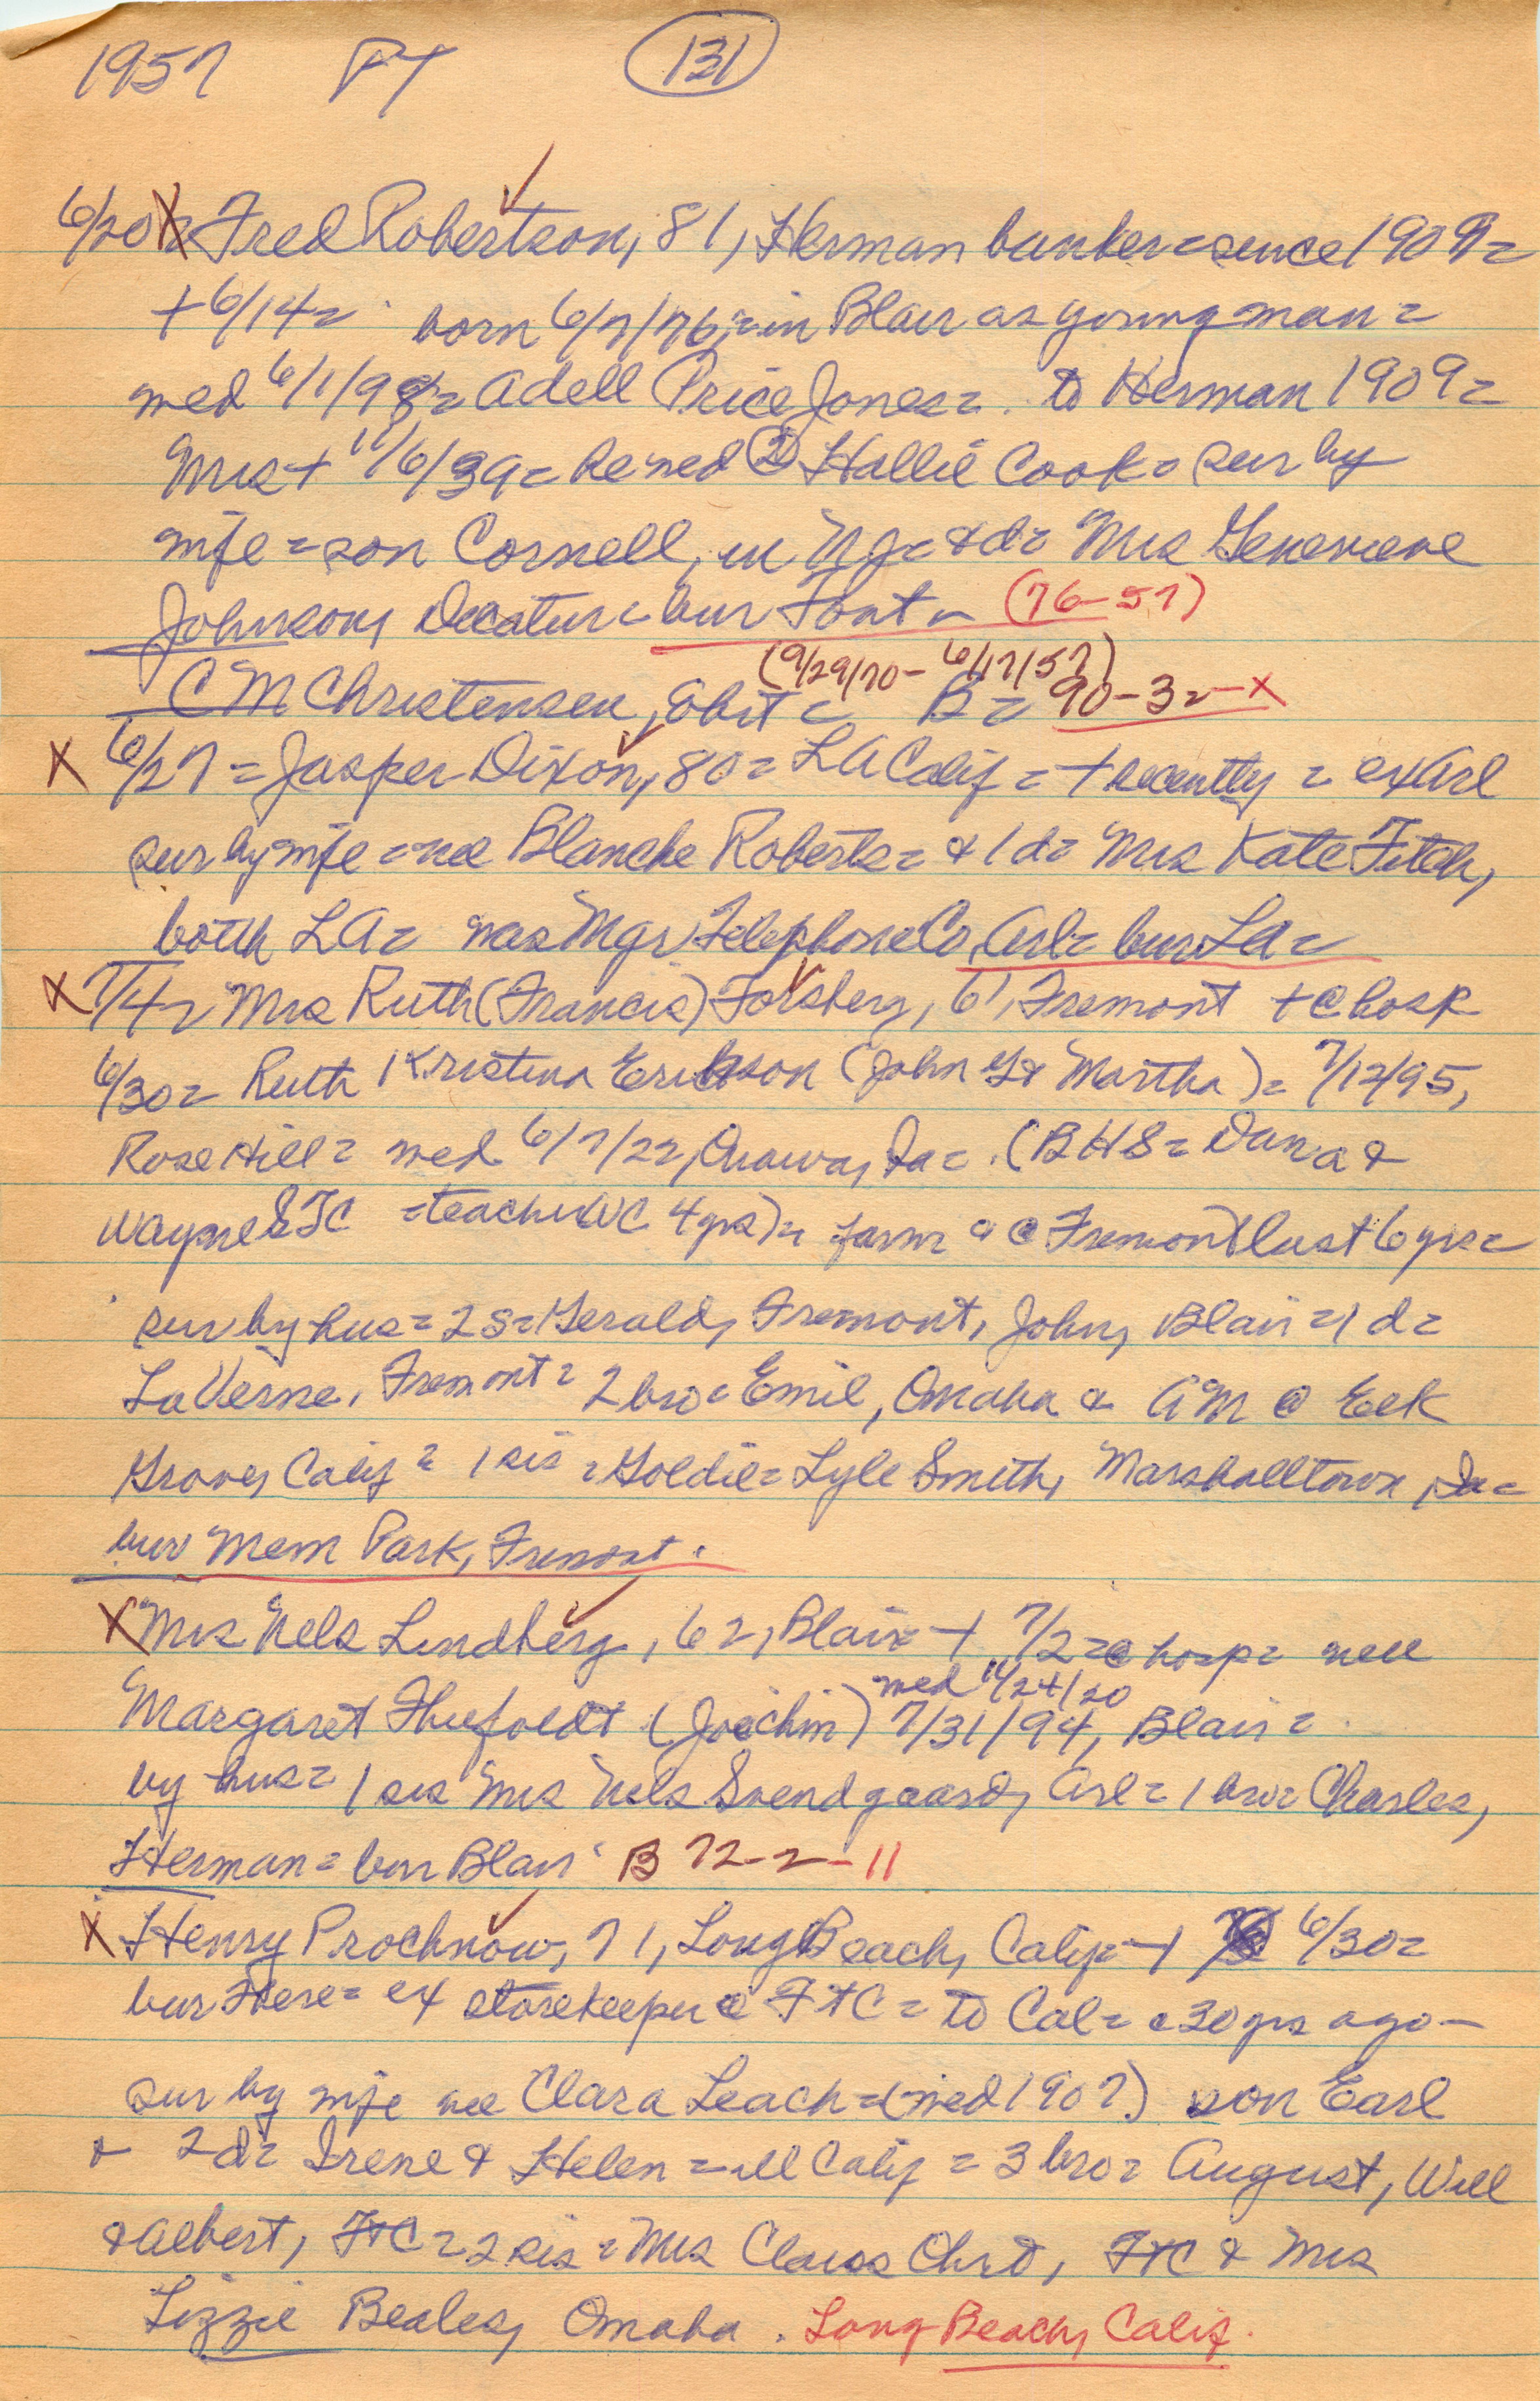 1957 PT 131
6/20 X Fred Robertson, 81, Herman banker = since 1909 =
+ 6/14 = born 6/7/76, = in Blair as young man =
med 6/1/98 = Adell Price Jones = . to Herman 1909 =
Mrs + 11/6/39 = he med ② Hallie Cook = sur by
wife = son Cornell, in NJ = & d = Mrs Genevieve
Johnson, Decatur = bur Font = (76-57)
(9/29/70 - 6/17/57)
C M Christensen, Obit = B = 90-32-X
X 6/27 = Jasper Dixon, 80 = LA Calif = + recently = ex Arl
sur by wife = nee Blanche Roberts = & 1 d = Mrs Kate Fitch,
both LA = was Mgr Telephone Co, Arl = bur LA =
X 7/4 = Mrs Ruth (Francis) Forsberg, 61, Fremont + @ hosp
6/30 = Ruth Kristina Erickson (John G & Martha) = 7/12/95,
Rose Hill = med 6/7/22, Onawa, Ia = . (BHS = Dana &
Wayne STC = teacher WC 4 yrs) = farm & @ Fremont last 6 yrs =
sur by hus = 2 s = Gerald, Fremont, John, Blair = 1 d =
LaVerne, Fremont = 2 bro = Emil, Omaha & AM @ Elk
Grove, Calif = 1 sis = Goldie = Lyle Smith, Marshalltown, Ia =
bur Mem Park, Fremont.
X Mrs Nels Lindberg, 62, Blair + 7/2 = @ hosp = nee
med 11/24/20
Margaret (Joachim) 7/31/94, Blair =
by hus = 1 sis Mrs Nels Svendgaard, Arl = 1 bro = Charles,
Herman = bur Blair B 72-2-11
X Henry Prochnow, 71, Long Beach, Calif = + 6/30 =
bur there = ex storekeeper @ FtC = to Cal = c 30 yrs ago -
sur by wife nee Clara Leach = (med 1907) son Earl
& 2 d = Irene & Helen = all Calif = 3 bro = August, Will
& Albert, FtC = 2 sis = Mrs Claus Ohrt, FtC & Mrs
Lizzie Beales, Omaha . Long Beach, Calif.